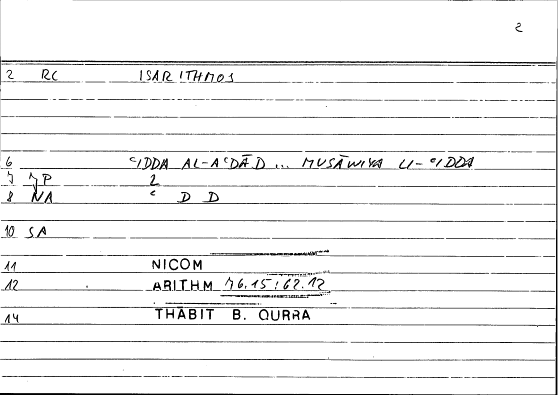 2
2 RC ISARITHMOS
6 ʿIDDA AL-AʿDĀD ... MUSĀWIYA LI-ʿIDDA
7 JP 2
8 NA ʿ D D
10 SA
11 NICOM
12 ARITHM 76.15 : 62.12
14 THĀBIT B. QURRA